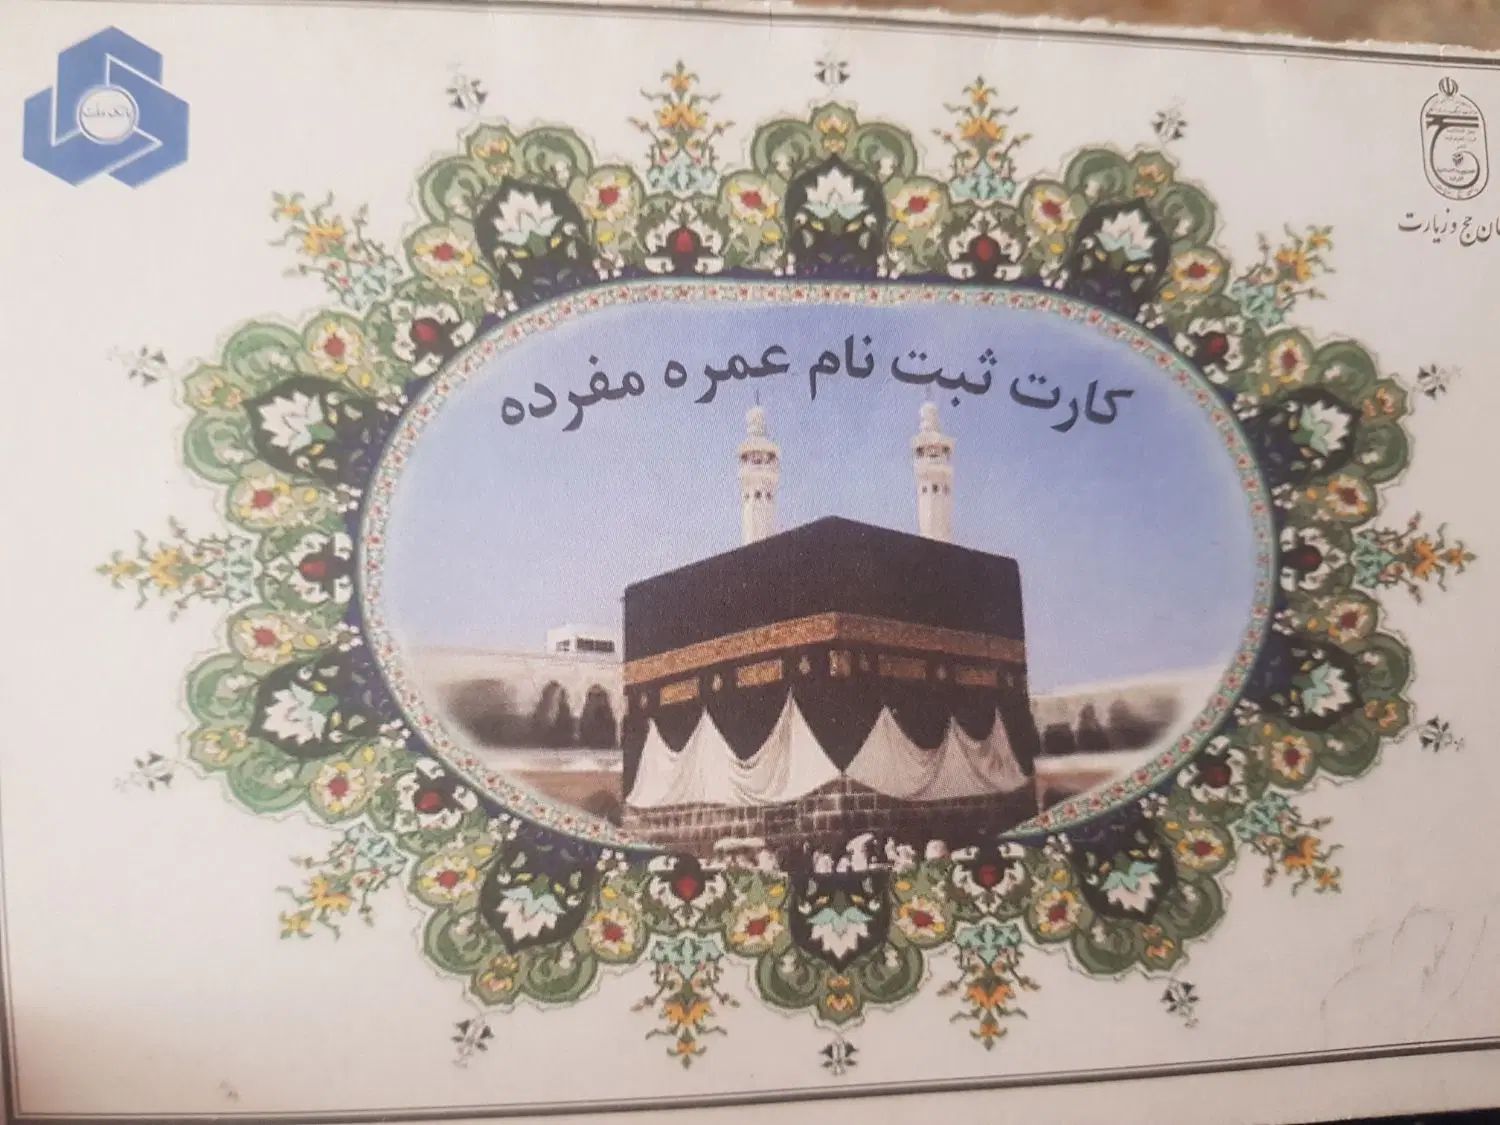 بانک ملت
حج و زیارت
کارت ثبت نام عمره مفرده